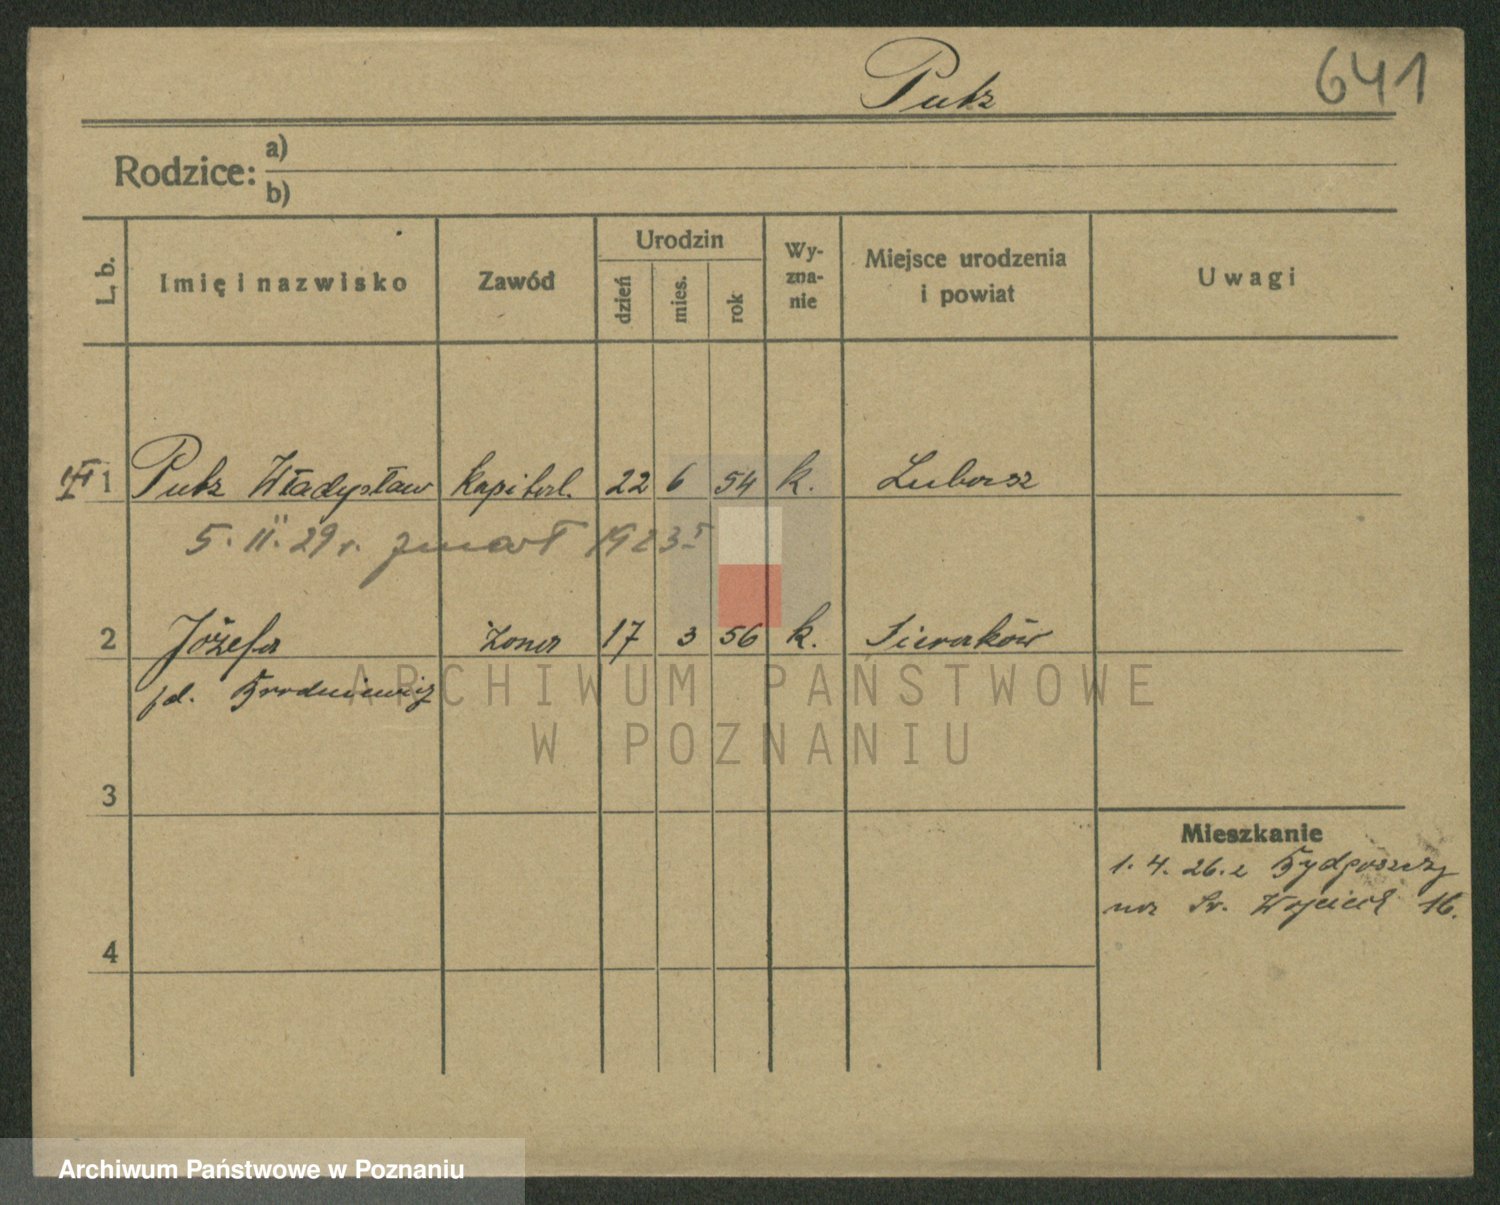 Putz 641
Rodzice: a)
b)
L. b. Imię i nazwisko Zawód Urodzin dzień mies. rok Wy-zna-nie Miejsce urodzenia i powiat Uwagi
1 Putz Władysław kapitał. 22 6 54 k. Lubosz
5. II. 29 r. zmarł 1923
2 Józefa żona 17 3 56 k. Sieraków
Brodniewicz
ARCHIWUM PAŃSTWOWE
W POZNANIU
3
Mieszkanie
1. 4. 26. z Bydgoszczy
na Św. Wojciech 16.
4
Archiwum Państwowe w Poznaniu